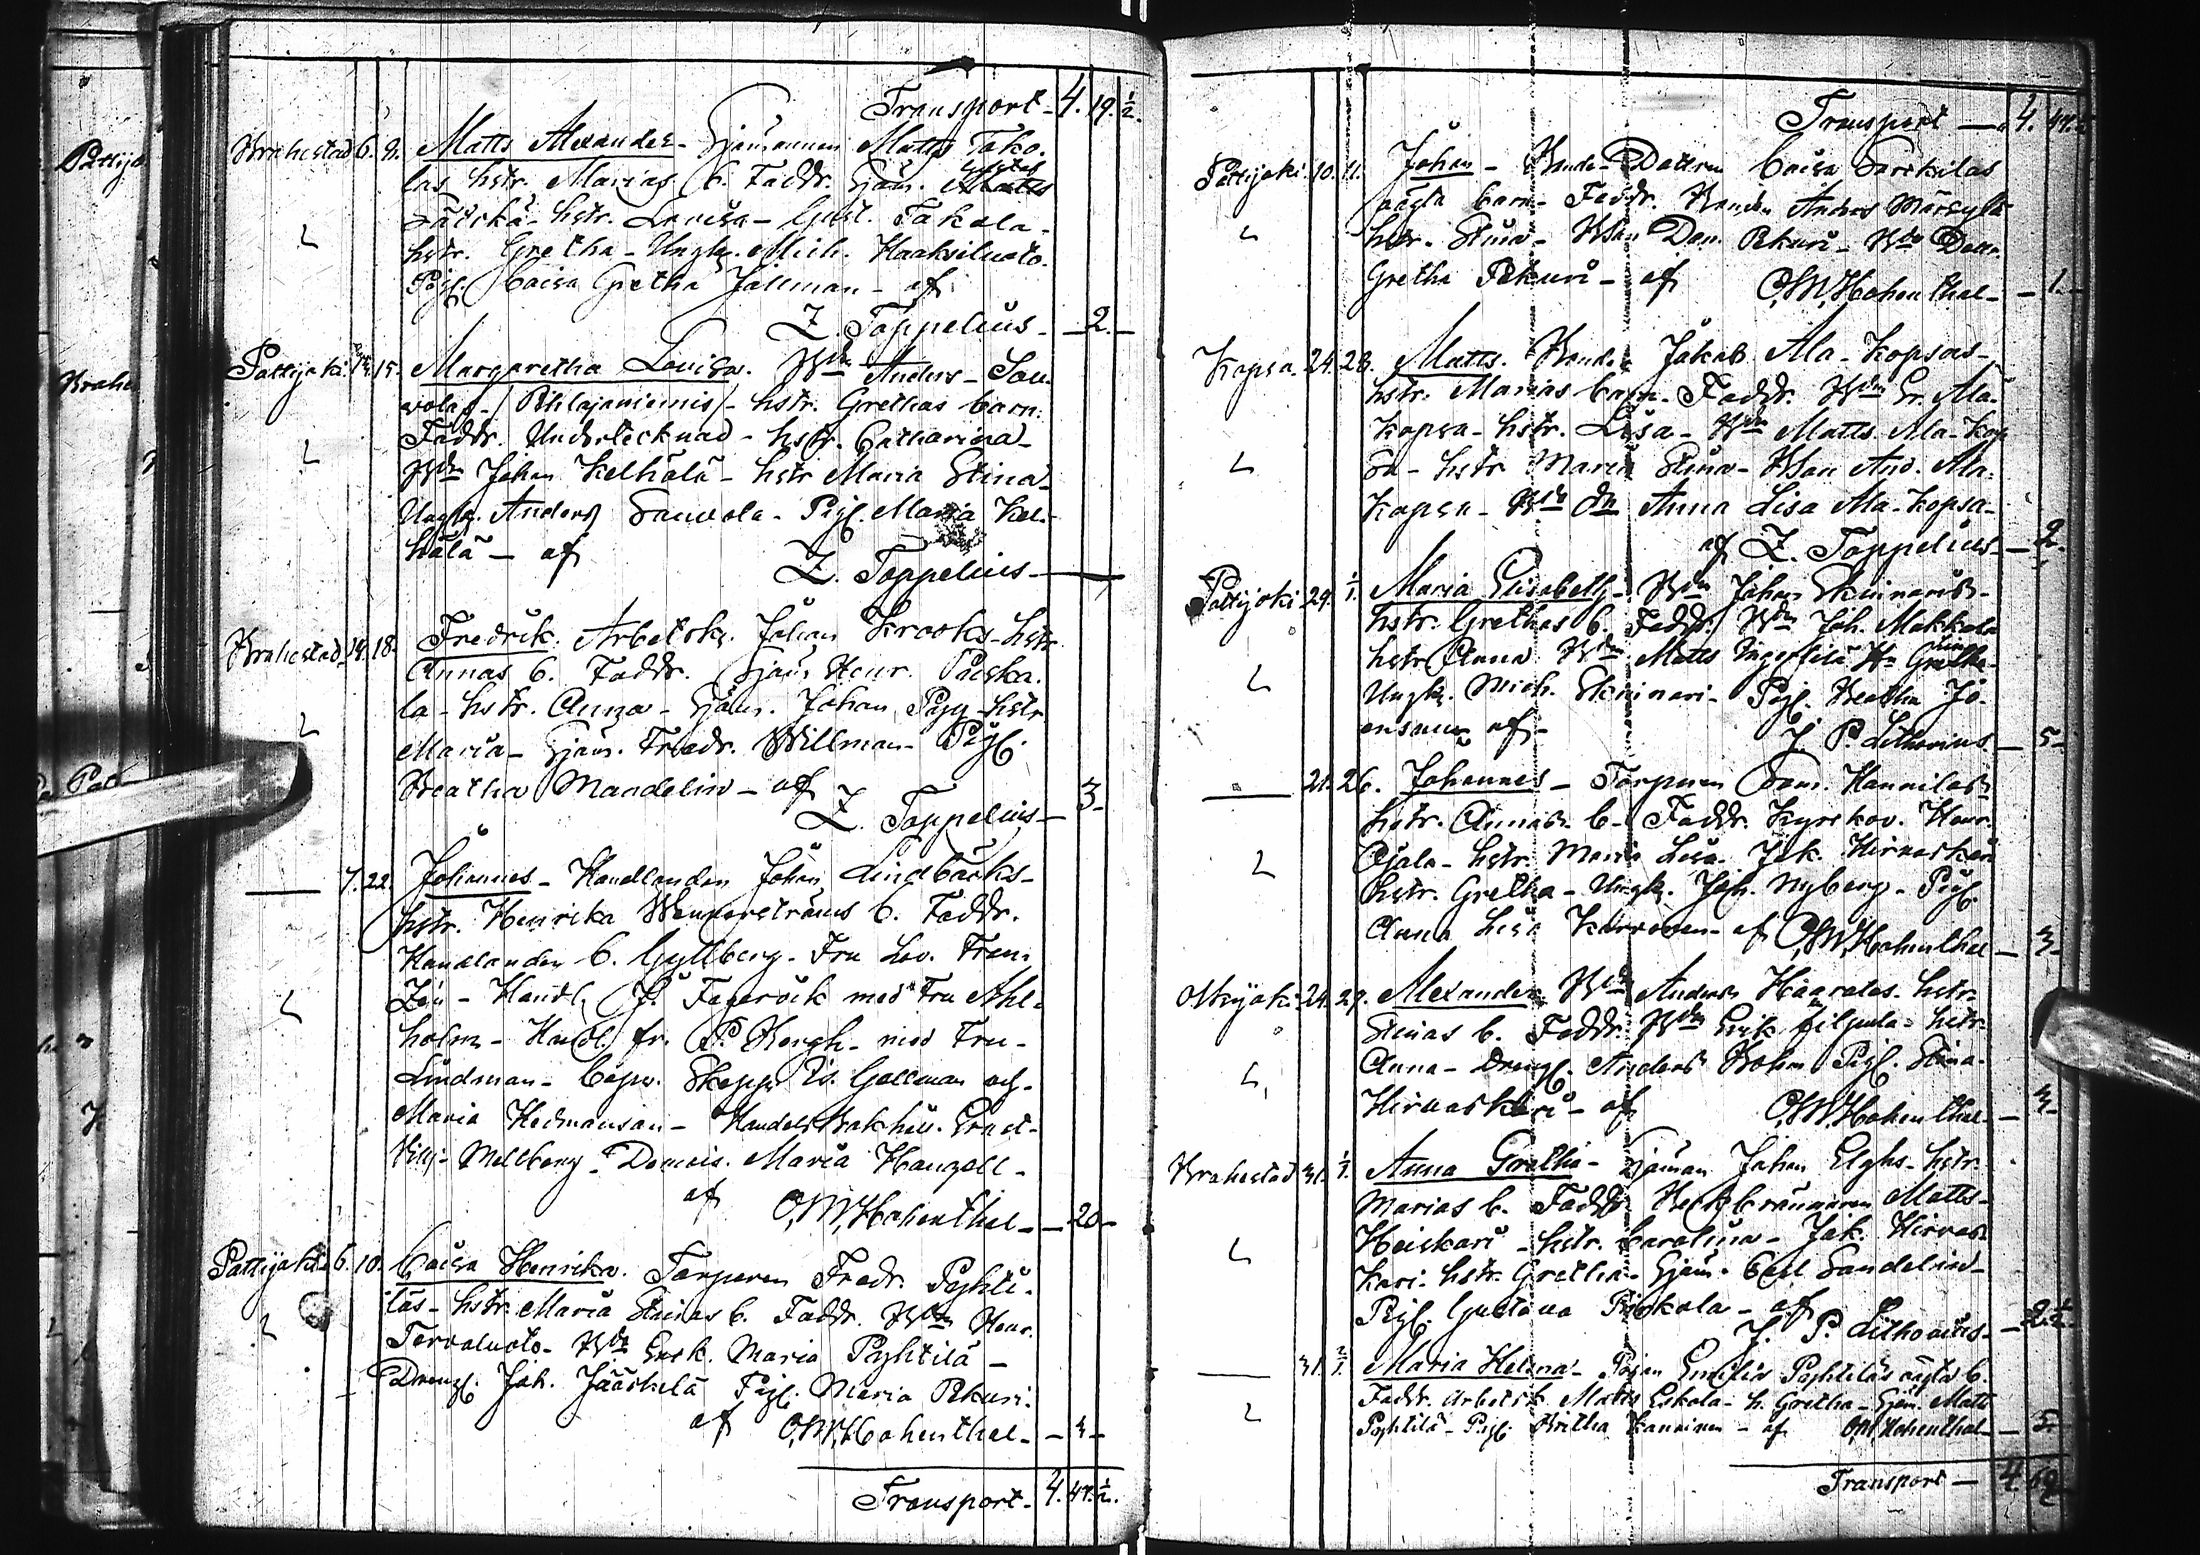 Transport - 4. 19. ½.
Brahestad 6. 9. Matts Alexander - Sjömannen Matts Tako-
las hstr. Marias b. Faddr. Sjöm.
hstr. Lovisa - Gust. Takola -
hstr. Gretha - Ungk. Mich. Haaksiluoto.
Pig. Caisa Gretha Jällman - af
Z. Toppelius - - 2. -
Pattijoki. 14. 15. Margaretha Lovisa. Bdn Anders - Sau-
volas - / Pihlajaniemis / - hstr. Grethas barn.
Faddr. Undertecknad - hstr. Catharina -
Bdn Johan Kelhälä - hstr Maria Stina -
Ungk. Anders Sauvola - Pig. Maria Kel-
hälä - af
Z. Toppelius -
Brahestad 14. 18. Fredrik. Arbetsk. Johan Krooks - hstr
Annas b. Faddr. Sjöm. Henr. Paska-
la - hstr. Anna - Sjöm. Johan Pigg - hstr
Maria - Sjöm. Fredr. Willman - Pig.
Beatha Mandelin - af
Z. Toppelius - 3 -
7. 22. Johannes - Handlanden Johan Lindbäcks -
hstr. Henrika Wennerströms b. Faddr.
Handlanden C. Gyllberg - Fru Lov. Fran-
zén - Handl. J. Fageröék med Fru Ahl-
holm - Handl. fr. P. Bergh - med Fru -
Lindman - Copv. Skepp. Is. Gallman och -
Maria Hedmansan - Handels Bokhåll. Ernst -
Vilh. Mellberg - Demois. Maria Hanzell -
af O.W. Hohenthal - - 20 -
Pattijoki 6. 10. Caisa Henrika. Torparen Fredr. Pyhti-
läs - hstr. Maria Stinas b. Faddr. Bdn Henr.
Tervaluoto - Bdn Erik. Maria Pyhtilä -
Dreng. Joh. Jääskelä Pig. Maria Pekuri.
af O.W. Hohenthal - - 3 -
Transport - 4. 47. ½.
Transport - 4. 47.
Pattijoki. 10. 11. Johan - Bonde - Dottren Caisa Sarkilas
oägta barn - Faddr. Bonden Anders Märsylä
hstr. Stina - BSon Dan. Pekuri - Bde Dottr.
Gretha Pekuri - af O.W. Hohenthal - - 1. -
Kopsa. 24. 28. Matts. Bonde Jakob Ala-Kopsas -
hstr. Marias barn - Faddr. Bdn Er. Ala-
Kopsa - hstr. Lisa - Bdn Matts Ala-Kop
sa - hstr Maria Stina - BSon And. Ala-
Kopsa - Anna Lisa Ala-Kopsa -
af Z. Toppelius - - 2.
Pattijoki 29. 1/1. Maria Elisabeth - Bdn Johan Skinnaris -
hstr. Grethas b. Faddr. Bdn Joh. Makkola
hstr Anna Bdn Matts
Ungk. Mich. Skinnari - Pig. Beatha Jo-
ensuu - af - J. P. Lithovius - 5 -
21. 26. Johannes - Torparen Hannilas
hstr. Annas b - Faddr. Kyrkov. Henr.
Ojala - hstr. Maria Lisa - Jak. Hirvaskari
hstr. Gretha - Ungk. Joh. Nyberg - Pig.
Anna Lisa - af O.W. Hohenthal - 3 -
Olkijoki 24. 29. Alexander. Bdn Anders Haaratas - hstr.
Stinas b. Faddr. Bdn Erik Jilpula - hstr.
Anna - Dreng. Anders Bohm Pig. Stina
Hirvaskari - af O.W. Hohenthal - 3 -
Brahestad 31. 1/1. Anna Gretha - Sjöman Johan Elghs - hstr.
Marias b. Faddr. Beckbrännaren Matts -
Heiskari - hstr. Carolina - Jak. Hirvas
kari - hstr. Gretha - Sjöm. Carl Sandelin -
Pig. Gustava - af
J. P. Lithovius - 2 ½
31. 2/1. Maria Helena - Pigan Emilia Pyhtiläs oägta b.
Faddr. Arbetsk. Matts Eskola - h. Gretha - Sjöm. Matts
Pyhtilä - Pig. Britha Kanninen - af O.W. Hohenthal - 5
Transport - 4